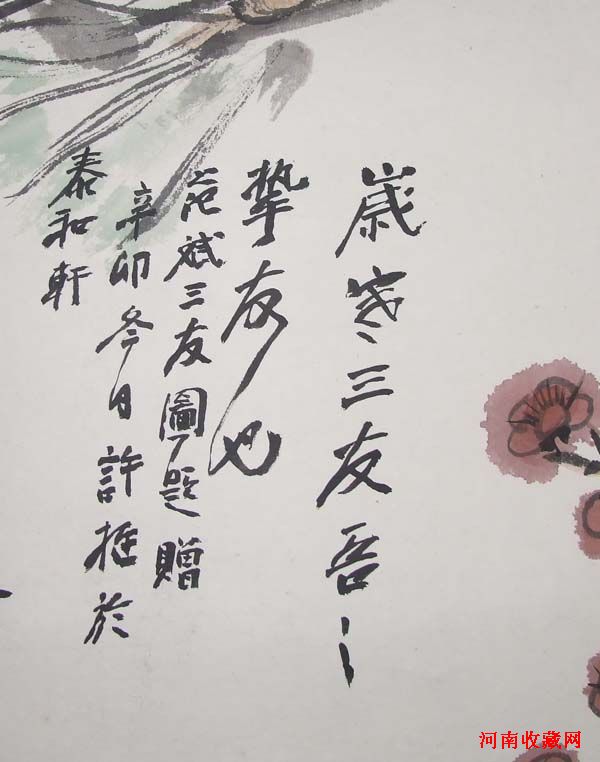 歲寒三友吾之
摯友也
范斌三友圖題贈
辛卯冬日許挺於
泰和軒
河南收藏网